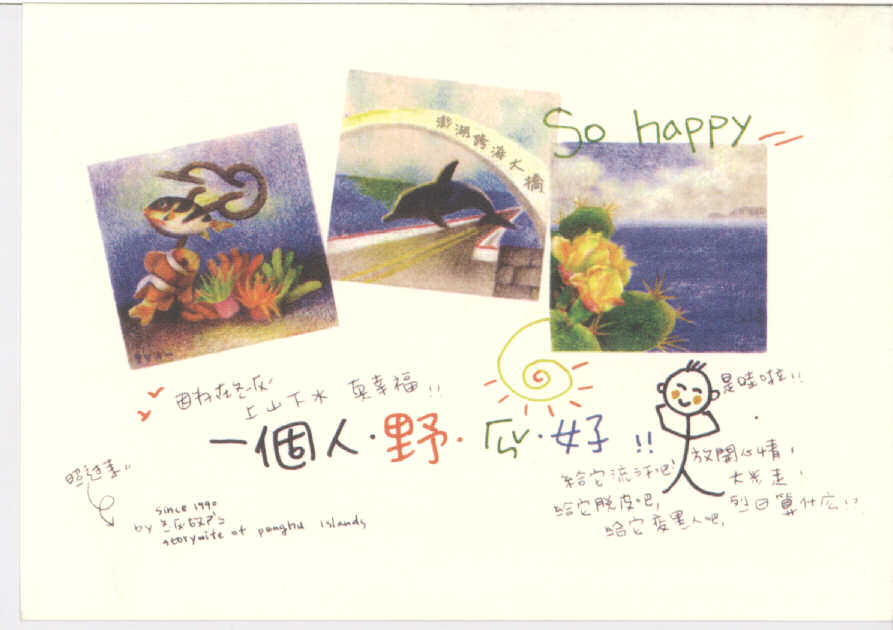 So happy
澎湖跨海大橋
上山下水 真幸福!!
一個人·野·瓜·好!!
是哇啦!!
放開心情,
大步走,
烈日算什広!?
給它流汗吧!
給它脫皮吧,
給它變黑人吧,
照過來!!
since 1990
by
storywite of penghu islands